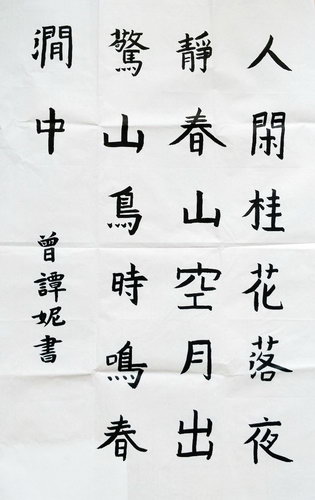 人閑桂花落夜
靜春山空月出
驚山鳥時鳴春
澗中
曾譚妮書